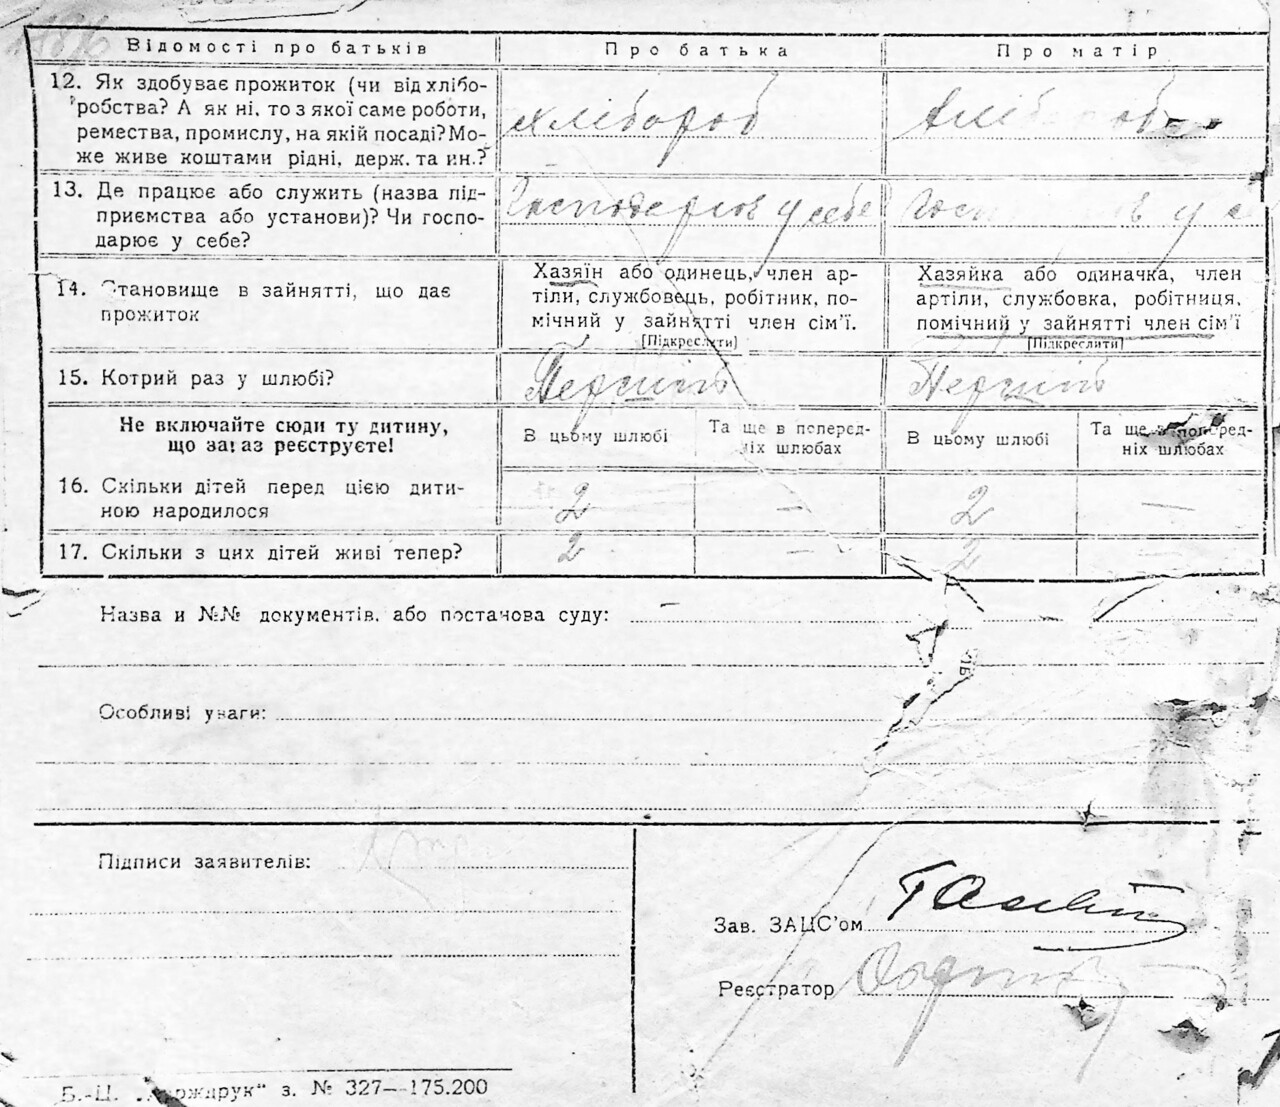 Відомості про батьків
Про батька
Про матір
12. Як здобуває прожиток (чи від хлібо-
робства? А як ні, то з якої саме роботи,
ремества, промислу, на якій посаді? Мо-
же живе коштами рідні, держ. та ин.?
хлібороб
13. Де працює або служить (назва під-
приємства або установи)? Чи госпо-
дарює у себе?
у себе
14. Становище в зайнятті, що дає
прожиток
Хазяїн або одинець, член ар-
тіли, службовець, робітник, по-
мічний у зайнятті член сім'ї.
[Підкреслити]
Хазяйка або одиначка, член
артіли, службовка, робітниця,
помічний у зайнятті член сім'ї
[Підкреслити]
15. Котрий раз у шлюбі?
Перший
Перший
Не включайте сюди ту дитину,
що зараз реєструєте!
В цьому шлюбі
Та ще в поперед-
ніх шлюбах
В цьому шлюбі
Та ще в поперед-
ніх шлюбах
16. Скільки дітей перед цією дити-
ною народилося
2
—
2
—
17. Скільки з цих дітей живі тепер?
2
—
2
—
Назва и №№ документів, або постанова суду: —
Особливі уваги:
Підписи заявителів:
Зав. ЗАЦС'ом
Реєстратор
Б.-Ц. „Держдрук“ з. № 327—175.200